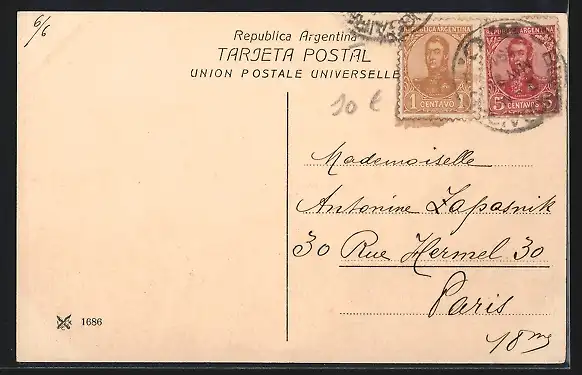 6/6
Republica Argentina
TARJETA POSTAL
UNION POSTALE UNIVERSELLE
REPUBLICA ARGENTINA
1 CENTAVO 1
REPUBLICA ARGENTINA
5 CENTAVOS 5
10 €
Mademoiselle
Antonine Zapasnik
30 Rue Hermel 30
Paris
18me
1686